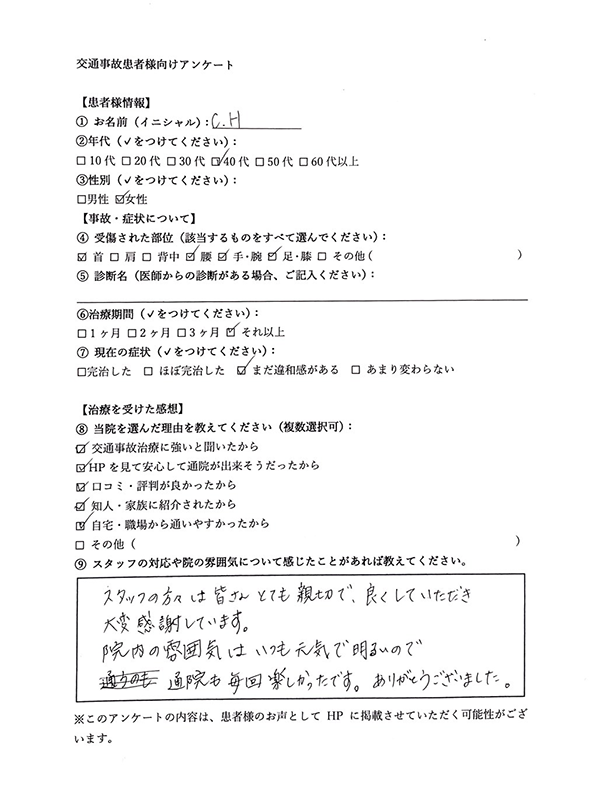 交通事故患者様向けアンケート
【患者様情報】
① お名前（イニシャル）：C.H
②年代（✓をつけてください）：
□10代 □20代 □30代 ☑40代 □50代 □60代以上
③性別（✓をつけてください）：
□男性 ☑女性
【事故・症状について】
④ 受傷された部位（該当するものをすべて選んでください）：
☑ 首 □ 肩 □ 背中 ☑ 腰 ☑ 手・腕 ☑ 足・膝 □ その他（ ）
⑤ 診断名（医師からの診断がある場合、ご記入ください）：
⑥治療期間（✓をつけてください）：
□1ヶ月 □2ヶ月 □3ヶ月 ☑ それ以上
⑦ 現在の症状（✓をつけてください）：
□完治した □ ほぼ完治した ☑ まだ違和感がある □ あまり変わらない
【治療を受けた感想】
⑧ 当院を選んだ理由を教えてください（複数選択可）：
☑ 交通事故治療に強いと聞いたから
☑HPを見て安心して通院が出来そうだったから
☑ 口コミ・評判が良かったから
☑ 知人・家族に紹介されたから
☑ 自宅・職場から通いやすかったから
□ その他（ ）
⑨ スタッフの対応や院の雰囲気について感じたことがあれば教えてください。
スタッフの方々は皆さんとても親切で、良くしていただき
大変感謝しています。
院内の雰囲気はいつも元気で明るいので
通院も毎回楽しかったです。ありがとうございました。
※このアンケートの内容は、患者様のお声として HP に掲載させていただく可能性がござ
います。